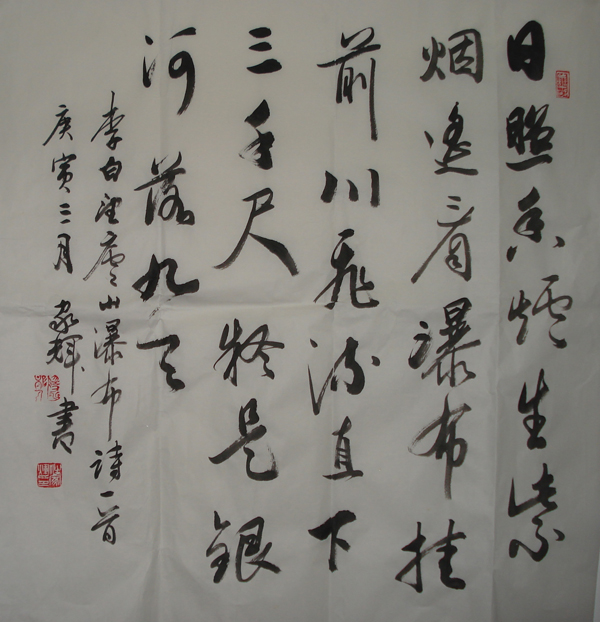 日照香爐生紫
烟遥看瀑布挂
前川飛流直下
三千尺疑是銀
河落九天
李白望廬山瀑布詩一首
庚寅三月家輝書